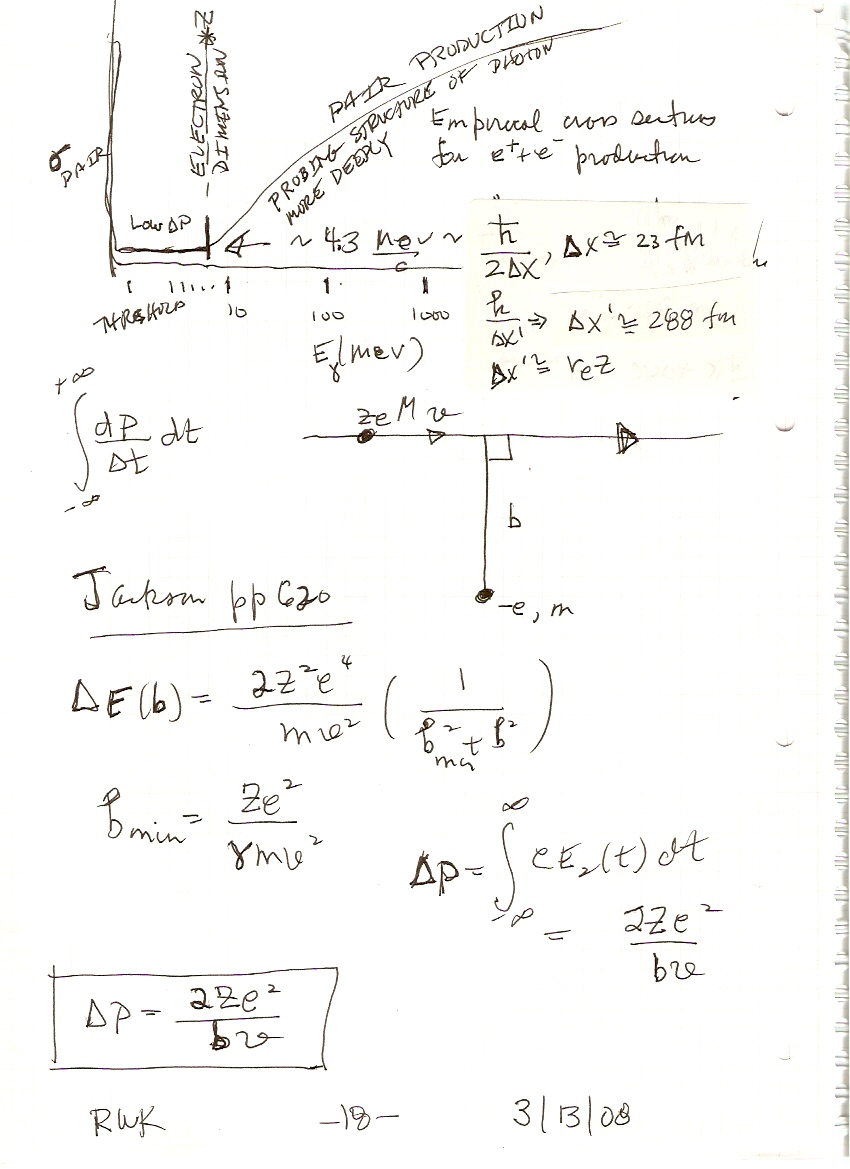 PAIR PRODUCTION
PROBING STRUCTURE OF PHOTON
MORE DEEPLY
ELECTRON *Z
DIMENSION
σ PAIR
Empirical cross sections
for e⁺+e⁻ production
LOW ΔP
~ 4.3 MeV/c ~
ħ/2Δx, Δx ≅ 23 fm
h/Δx' ⇒ Δx' ≅ 288 fm
Δx' ≅ reZ
THRESHOLD 10 100 1000
Eγ(MeV)
∫ -∞ +∞ dP/Δt dt
Ze M v
b
-e, m
Jackson pp 620
ΔE(b) = 2Z²e⁴/mv² ( 1/b²min + b² )
bmin = Ze²/γmv²
Δp = ∫ -∞ ∞ eE₂(t) dt
= 2Ze²/bv
Δp = 2Ze²/bv
RWK -18- 3/13/08